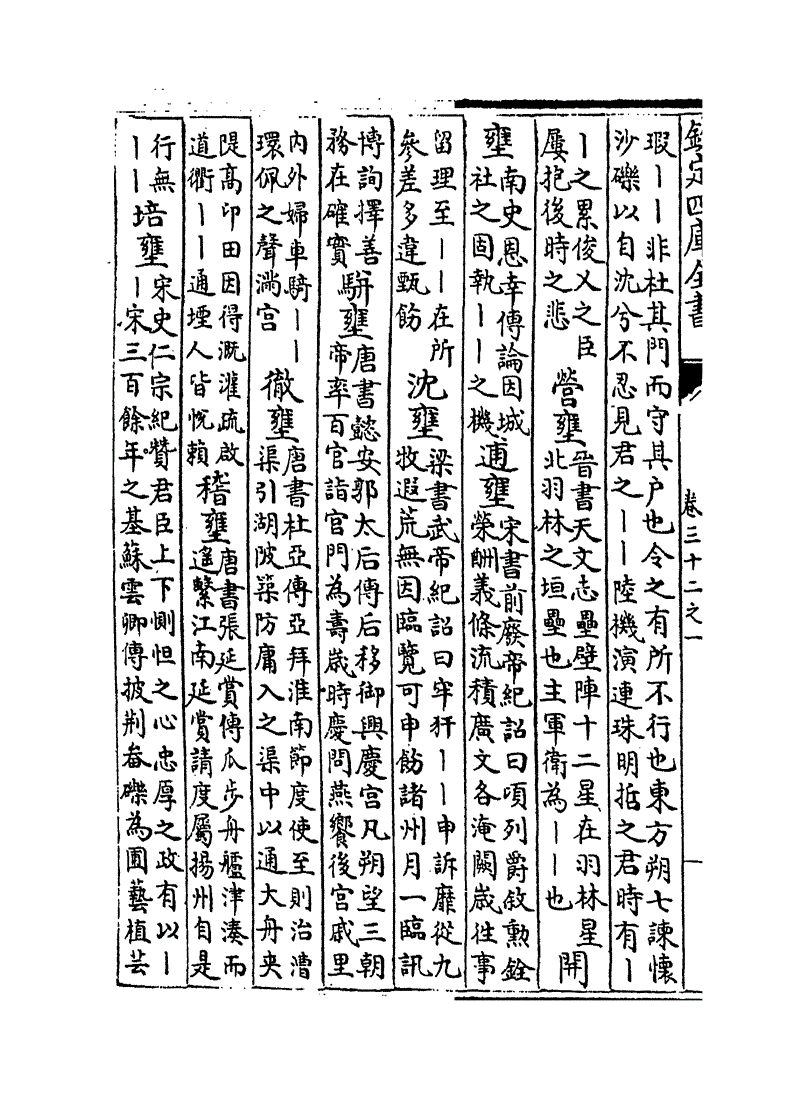 欽定四庫全書 卷三十二之一
瑕丨丨非杜其門而守其户也令之有所不行也東方朔七諫懷
沙礫以自沈兮不忍見君之丨丨陸機演連珠明哲之君時有丨
丨之累俊乂之臣
屢抱後時之悲
營壅
晉書天文志壘壁陣十二星在羽林星
北羽林之垣壘也主軍衛為丨丨也
開
壅
南史恩幸傳論因城
社之固執丨丨之機
逋壅
宋書前廢帝紀詔曰頃列爵敘勲銓
榮酬義條流積廣文各淹闕歲往事
留理至丨丨在所
參差多違甄飭
沈壅
梁書武帝紀詔曰牢犴丨丨申訴靡從九
牧遐荒無因臨覽可申飭諸州月一臨訊
博詢擇善
務在確實
駢壅
唐書懿安郭太后傳后移御興慶宫凡朔望三朝
帝率百官詣官門為壽歲時慶問燕饗後宫戚里
内外婦車騎丨丨
環佩之聲満宫
徹壅
唐書杜亞傳亞拜淮南節度使至則治漕
渠引湖陂築防庸入之渠中以通大舟夾
隄高卬田因得溉灌疏啟
道衢丨丨通堙人皆悅賴
稽壅
唐書張延賞傳瓜步舟艫津湊而
遥繫江南延賞請度屬揚州自是
行無
丨丨
培壅
宋史仁宗紀贊君臣上下惻怛之心忠厚之政有以丨
丨宋三百餘年之基蘇雲卿傳披荆畚礫為圃藝植芸